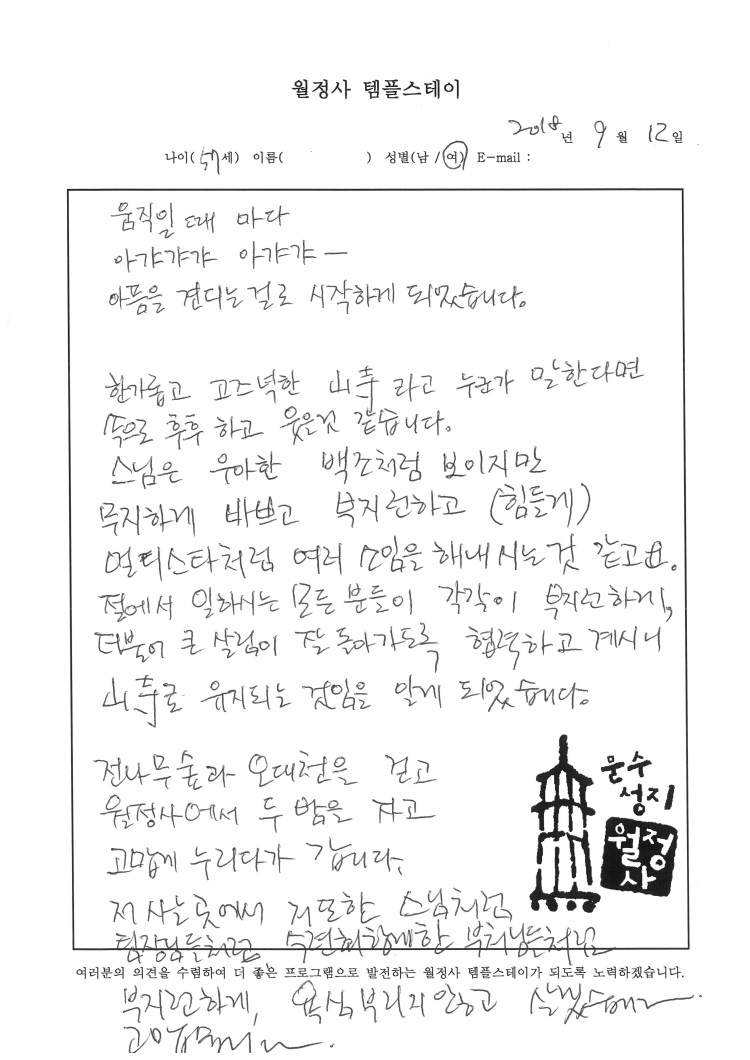 월정사 템플스테이
2018년 9월 12일
나이( 세) 이름( ) 성별(남 / 여) E-mail :
움직일 때 마다
아갸갸갸 아갸갸 —
아픔을 견디는걸로 시작하게 되었습니다.
한가롭고 고즈넉한 山寺 라고 누군가 말한다면
속으로 후후 하고 웃을것 같습니다.
스님은 우아한 백조처럼 보이지만
무지하게 바쁘고 부지런하고 (힘들게)
멀티스타처럼 여러 소임을 해내시는것 같고요.
절에서 일하시는 모든 분들이 각각이 부지런하게,
더불어 큰 살림이 잘 돌아가도록 협력하고 계시니
山寺로 유지되는 것임을 알게 되었습니다.
전나무숲과 오대천을 걷고
월정사에서 두 밤을 자고
고맙게 누리다가 갑니다.
문수
성지
월정
사
저 사는 곳에서 저또한 스님처럼,
팀장님들처럼, 부처님들처럼
여러분의 의견을 수렴하여 더 좋은 프로그램으로 발전하는 월정사 템플스테이가 되도록 노력하겠습니다.
부지런하게, 욕심부리지않고 살겠습니다.